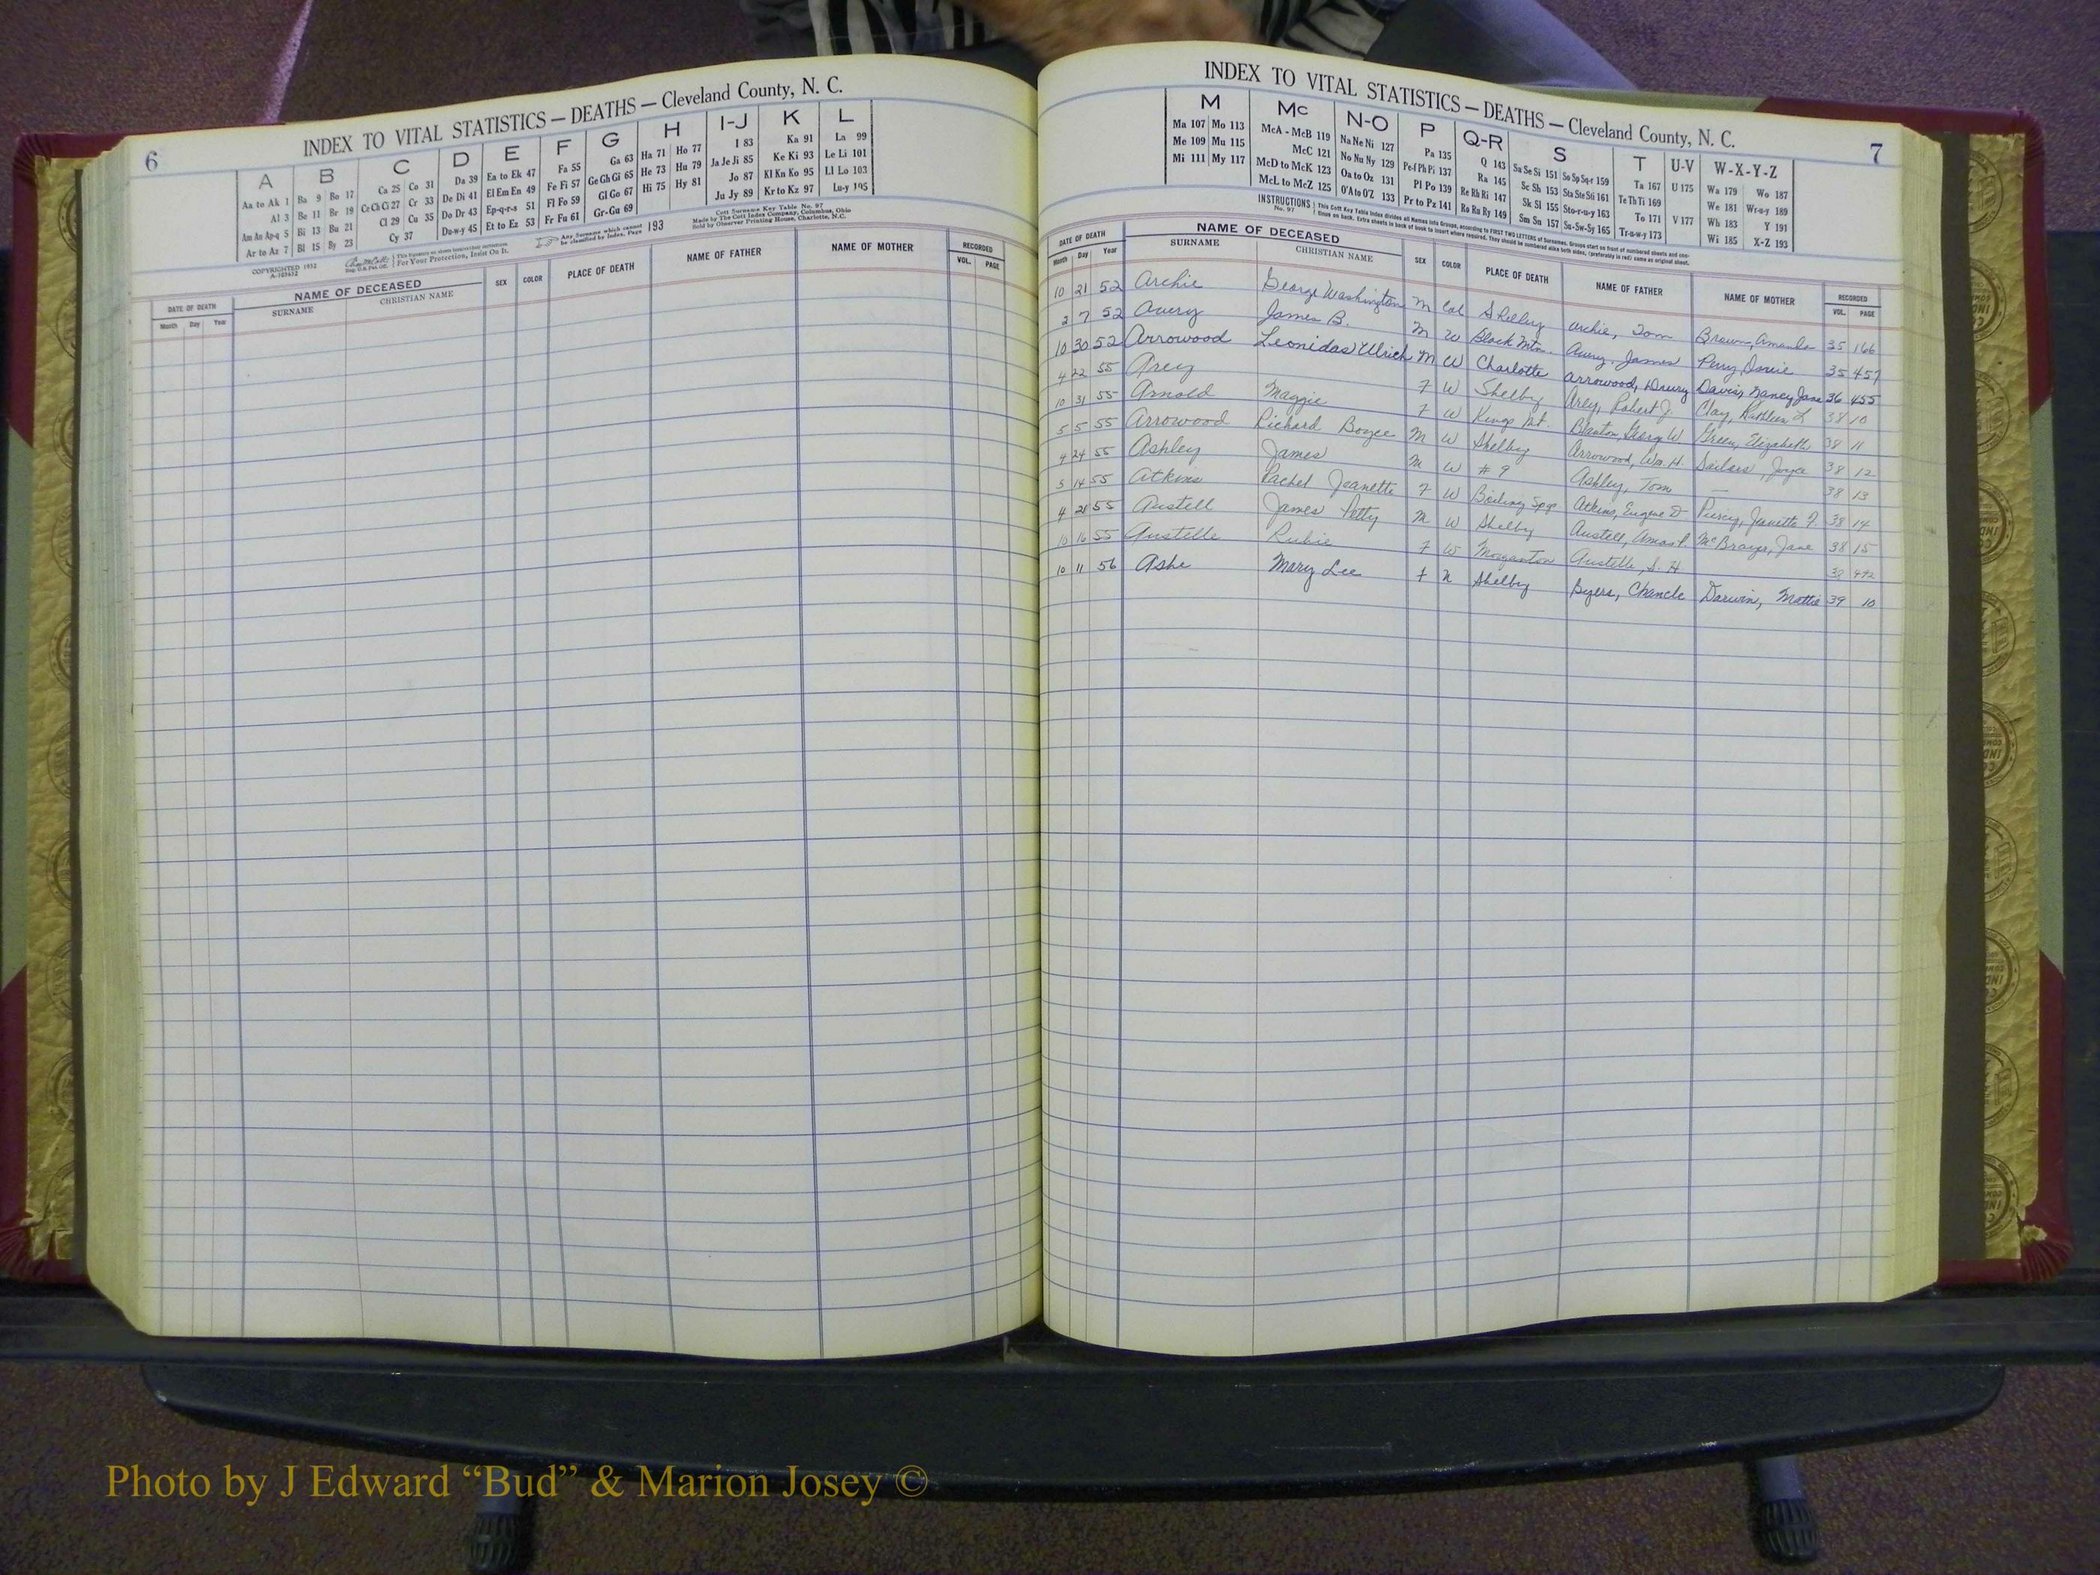 6
INDEX TO VITAL STATISTICS — DEATHS — Cleveland County, N. C.
A B C D E F G H I-J K L
Aa to Ak 1 Al 3 Am An Ap-q 5 Ar to Az 7
Ba 9 Be 11 Bi 13 Bl 15 Bo 17 Br 19 Bu 21 By 23
Ca 25 Ce Ch Ci 27 Cl 29 Cy 37 Co 31 Cr 33 Cu 35
Da 39 De Di 41 Do Dr 43 Du-w-y 45
Ea to Ek 47 El Em En 49 Ep-q-r-s 51 Et to Ez 53
Fa 55 Fe Fi 57 Fl Fo 59 Fr Fu 61
Ga 63 Ge Gh Gi 65 Gl Go 67 Gr-Gu 69
Ha 71 He 73 Hi 75 Ho 77 Hu 79 Hy 81
I 83 Ja Je Ji 85 Jo 87 Ju Jy 89
Ka 91 Ke Ki 93 Kl Kn Ko 95 Kr to Kz 97
La 99 Le Li 101 Ll Lo 103 Lu-y 105
COPYRIGHTED 1932
For Your Protection, Insist On It.
Any Surname which cannot be classified by Index, Page 193
Cott Surname Key Table No. 97
Made by The Cott Index Company, Columbus, Ohio
Sold by Observer Printing House, Charlotte, N.C.
DATE OF DEATH NAME OF DECEASED SEX COLOR PLACE OF DEATH NAME OF FATHER NAME OF MOTHER RECORDED
Month Day Year SURNAME CHRISTIAN NAME VOL. PAGE
INDEX TO VITAL STATISTICS — DEATHS — Cleveland County, N. C.
7
M Mc N-O P Q-R S T U-V W-X-Y-Z
Ma 107 Me 109 Mi 111 Mo 113 Mu 115 My 117
McA - McB 119 McC 121 McD to McK 123 McL to McZ 125
Na Ne Ni 127 No Nu Ny 129 Oa to Oz 131 O'A to O'Z 133
Pa 135 Pe-f Ph Pi 137 Pl Po 139 Pr to Pz 141
Q 143 Ra 145 Re Rh Ri 147 Ro Ru Ry 149
Sa Se Si 151 Sc Sh 153 Sk Sl 155 Sm Sn 157 So Sp Sq-r 159 Sta Ste Sti 161 Sto-r-u-y 163 Su-Sw-Sy 165
Ta 167 Te Th Ti 169 To 171 Tr-u-w-y 173
U 175 V 177
Wa 179 We 181 Wh 183 Wi 185 Wo 187 Wr-u-y 189 Y 191 X-Z 193
INSTRUCTIONS No. 97 This Cott Key Table Index divides all Names into Groups, according to FIRST TWO LETTERS of Surnames.
DATE OF DEATH NAME OF DECEASED SEX COLOR PLACE OF DEATH NAME OF FATHER NAME OF MOTHER RECORDED
Month Day Year SURNAME CHRISTIAN NAME VOL. PAGE
10 21 52 Archie George Washington M Col Shelby Archie, Tom Brown, Amanda 35 166
2 7 52 Avery James B. M W Black Mtn. Avery, James Perry, 35 457
10 30 52 Arrowood Leonidas Ulrich M W Charlotte Arrowood, Drury Davis, Nancy Jane 36 455
4 22 55 Arey F W Shelby Arey, Robert J. Clay, Kathleen L 38 10
10 31 55 Arnold Maggie F W Kings Mt. Blanton, George W Green, Elizabeth 38 11
5 5 55 Arrowood Richard Boyce M W Shelby Arrowood, Wm. H. Sailors, Joyce 38 12
4 24 55 Ashley James M W # 9 Ashley, Tom — 38 13
5 14 55 Atkins Rachel Jeanette F W Boiling Spgs Atkins, Eugene D Piercy, Janette F. 38 14
4 28 55 Austell James Petty M W Shelby Austell, Amos P. McBrayer, Jane 38 15
10 16 55 Austelle Rubie F W Morganton Austelle, S. H 38 492
10 11 56 Ashe Mary Lee F N Shelby Byers, Chancle Darwin, Mattie 39 10
Photo by J Edward “Bud” & Marion Josey ©